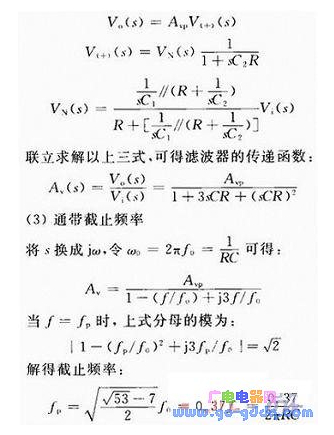 V₀(s) = AᵥₚV₍₊₎(s)
V₍₊₎(s) = V_N(s) 1/(1 + sC₂R)
V_N(s) = {1/(sC₁) // (R + 1/(sC₂))} / {R + [1/(sC₁) // (R + 1/(sC₂))]} Vᵢ(s)
联立求解以上三式,可得滤波器的传递函数:
Aᵥ(s) = V₀(s)/Vᵢ(s) = Aᵥₚ/(1 + 3sCR + (sCR)²)
(3) 通带截止频率
将 s 换成 jω,令 ω₀ = 2πf₀ = 1/(RC) 可得:
Aᵥ = Aᵥₚ/(1 − (f/f₀)² + j3f/f₀)
当 f = fₚ 时,上式分母的模为:
| 1 − (fₚ/f₀)² + j3fₚ/f₀ | = √2
解得截止频率:
fₚ = √((√53 − 7)/2) f₀ = 0.37f₀ = 0.37/(2πRC)